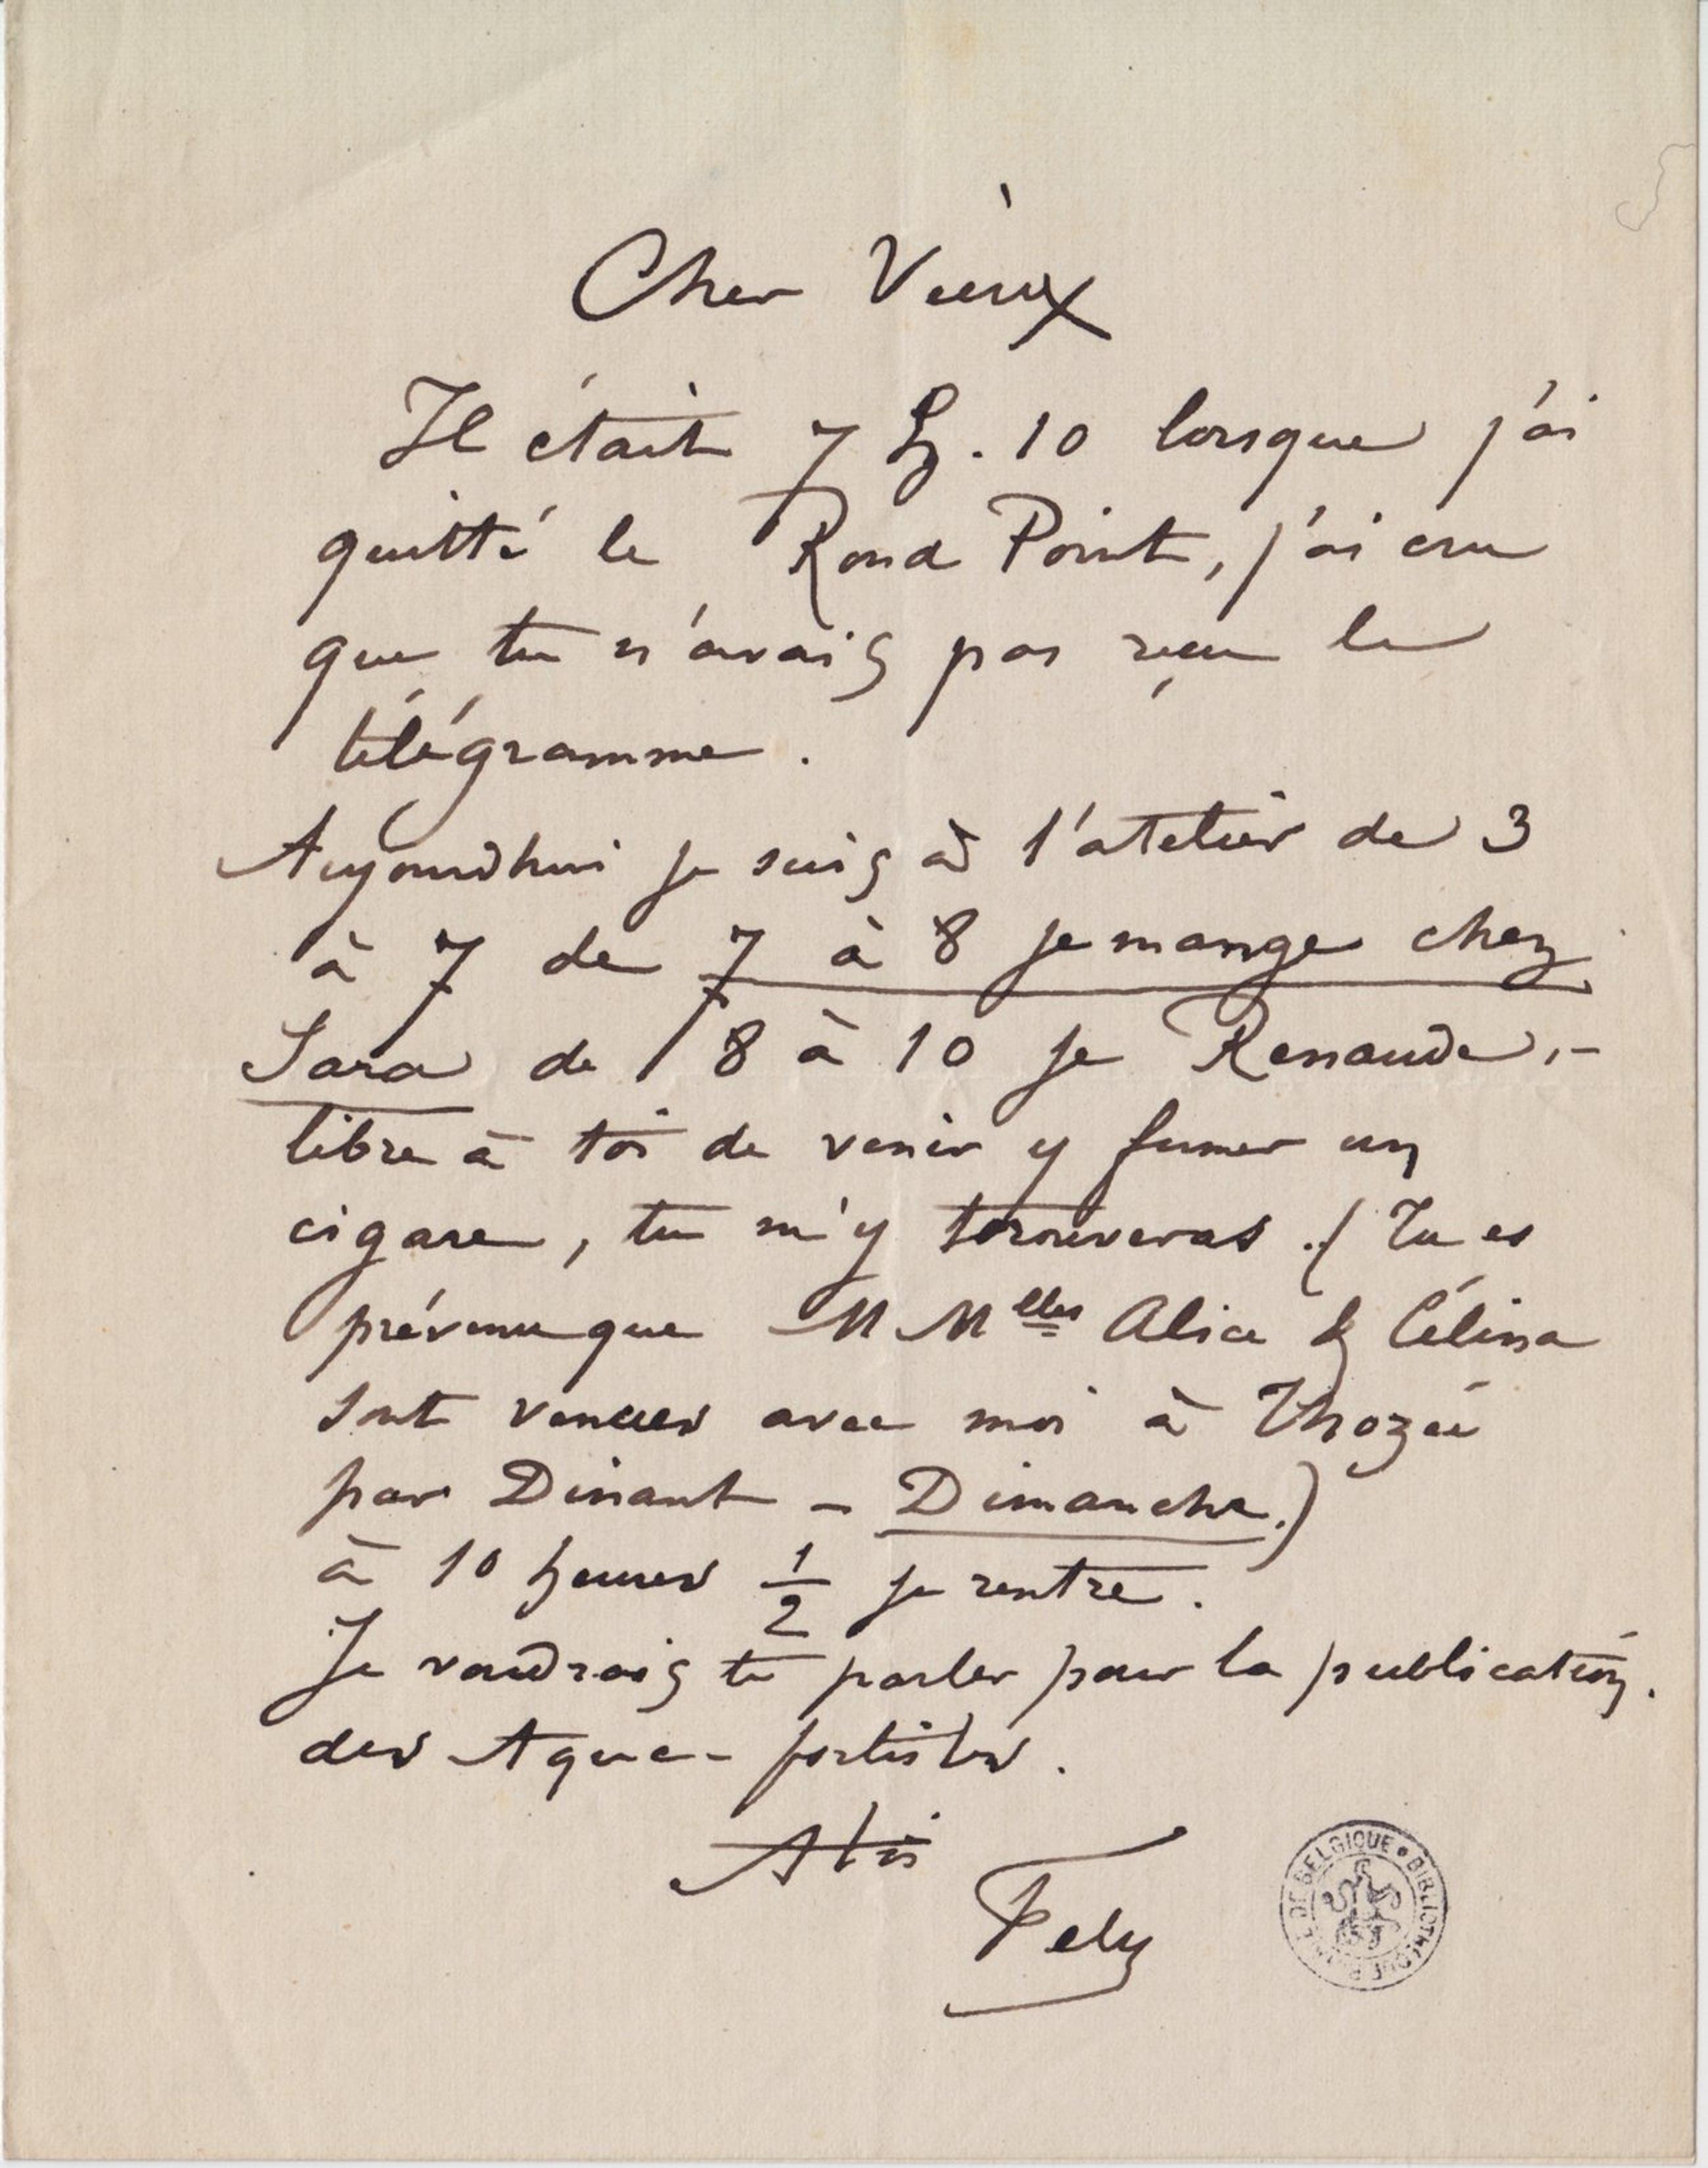 Cher Vieux
Il était 7 h. 10 lorsque j'ai
quitté le Rond Point, j'ai cru
que tu n'avais pas reçu le
télégramme.
Aujourdhui je suis à l'atelier de 3
à 7 de 7 à 8 je mange chez
Sara de 8 à 10 je Renaude, –
libre à toi de venir y fumer un
cigare, tu m'y trouveras. (Tu es
prévenu que MMlles Alice & Célina
sont venues avec moi à Thozée
par Dinant – Dimanche.)
à 10 heures 1/2 je rentre.
Je voudrais te parler pour la publication.
des Aqua-fortistes.
Fely
BIBLIOTHÈQUE ROYALE DE BELGIQUE